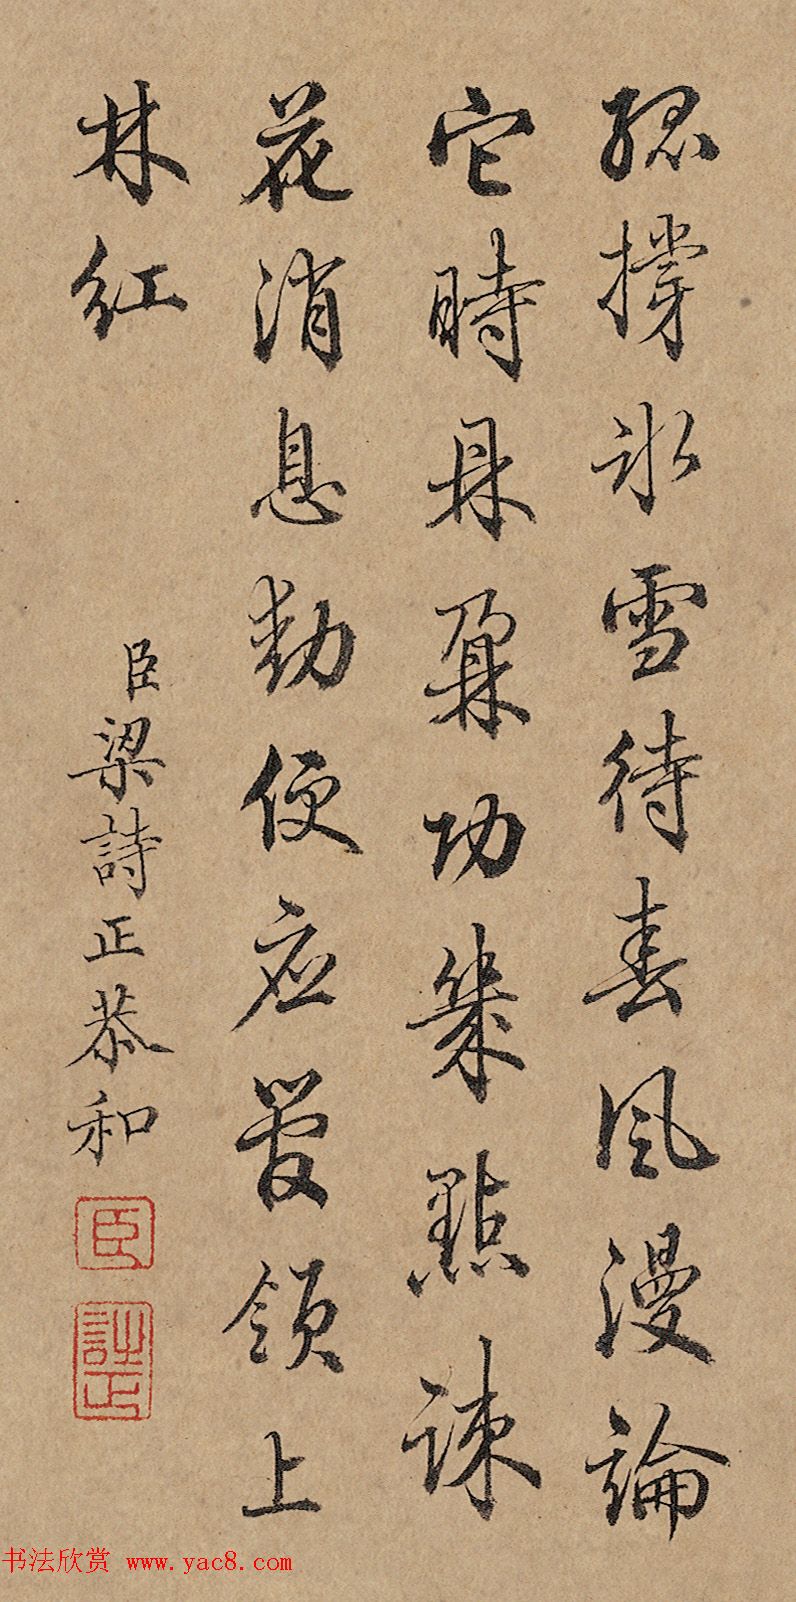 孤撐冰雪待春風漫論
它時鼎鼐功幾點疎
花消息動便应管領上
林紅
臣梁詩正恭和
臣
詩正
书法欣赏 www.yac8.com